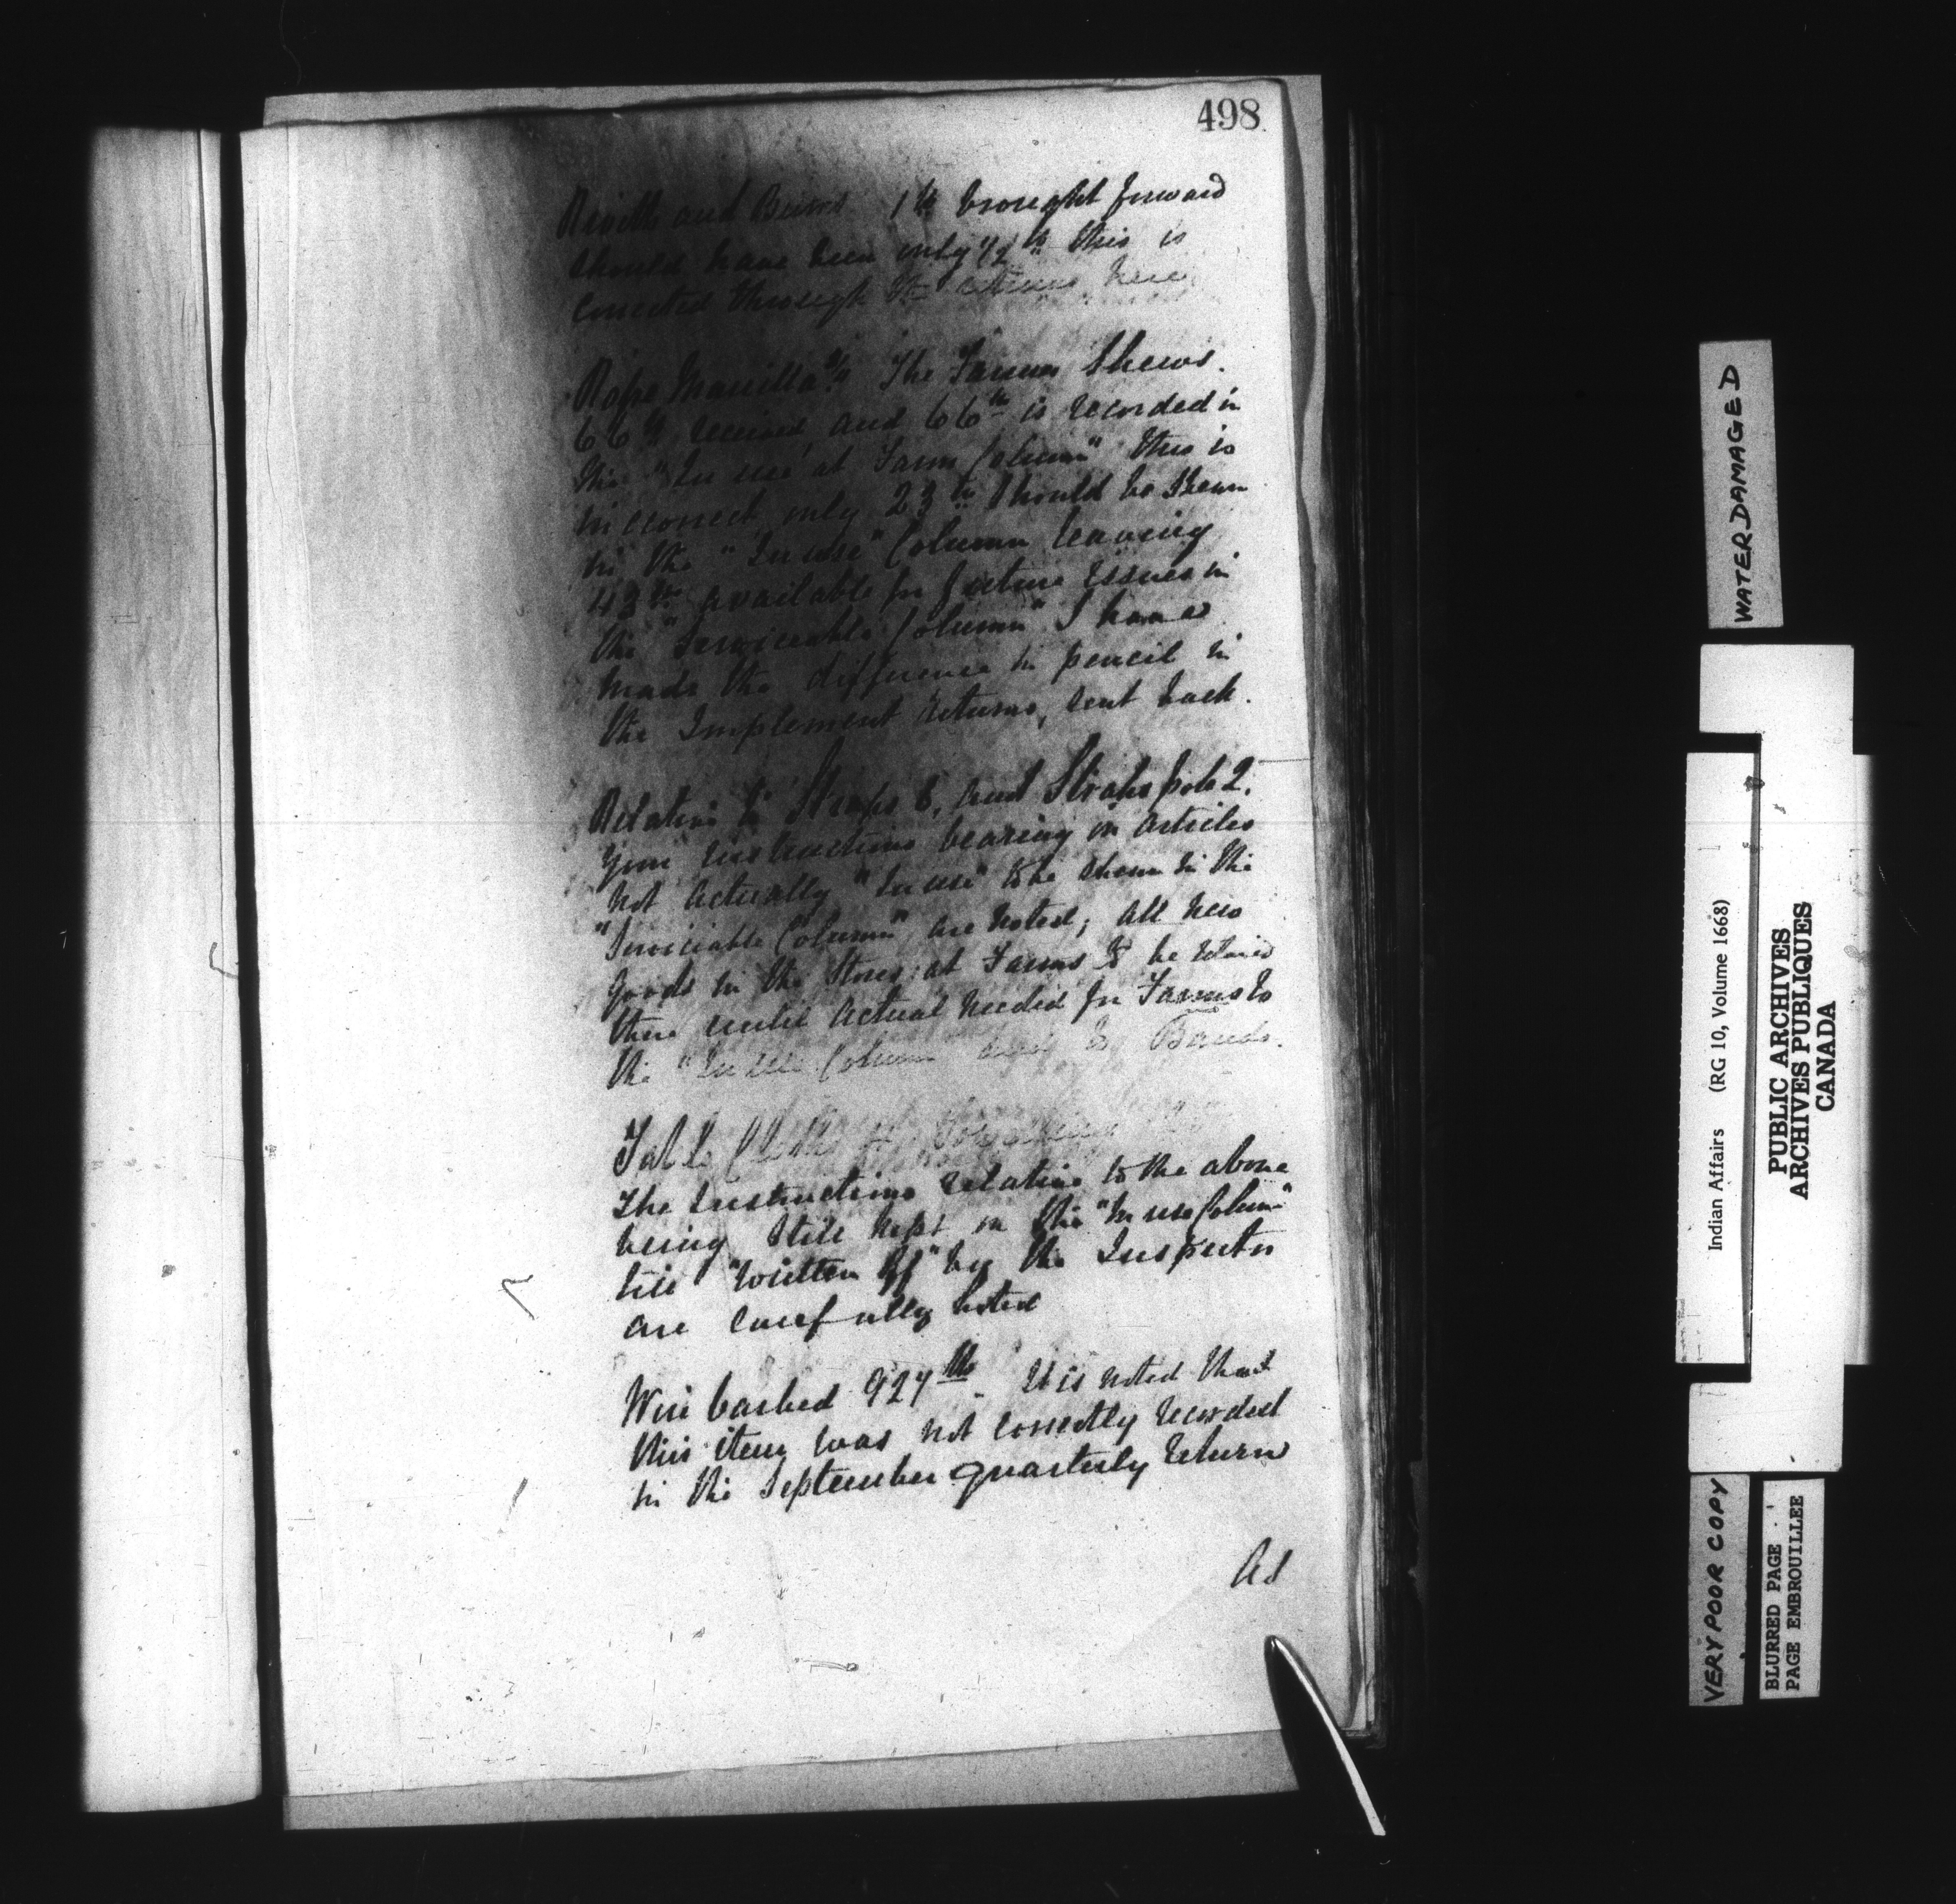 498
and 1 lb brought forward
should have been only 1/2 lb this is
corrected through the returns here
Rope Manilla The Farm Shews.
66 lb received and 66 lb is recorded in
the "In use at Farm Column" this is
incorrect only 23 lb should be shewn
in the "In use" Column leaving
43 lb available for future issues in
the "Serviceable Column" I have
made the difference in pencil in
the Implement Returns, sent back.
Relative to Straps 6, and Straps pole 2.
Your instructions bearing on articles
not actually "In use" to be shewn in the
"Serviciable Column" are noted; all new
goods in the Stores at Farms to be retained
there until actual needed for Farms to
the "In use Column and to Bands.
Table Cloth
The Instructions relative to the above
being still kept in the "In use Column"
till "written off" by the Inspector
are carefully noted
Wire barbed 927 lb It is noted that
this item was not correctly recorded
in the September quarterly return
As
WATERDAMAGED
Indian Affairs (RG 10, Volume 1668)
PUBLIC ARCHIVES
ARCHIVES PUBLIQUES
CANADA
VERY POOR COPY
BLURRED PAGE
PAGE EMBROUILLEE